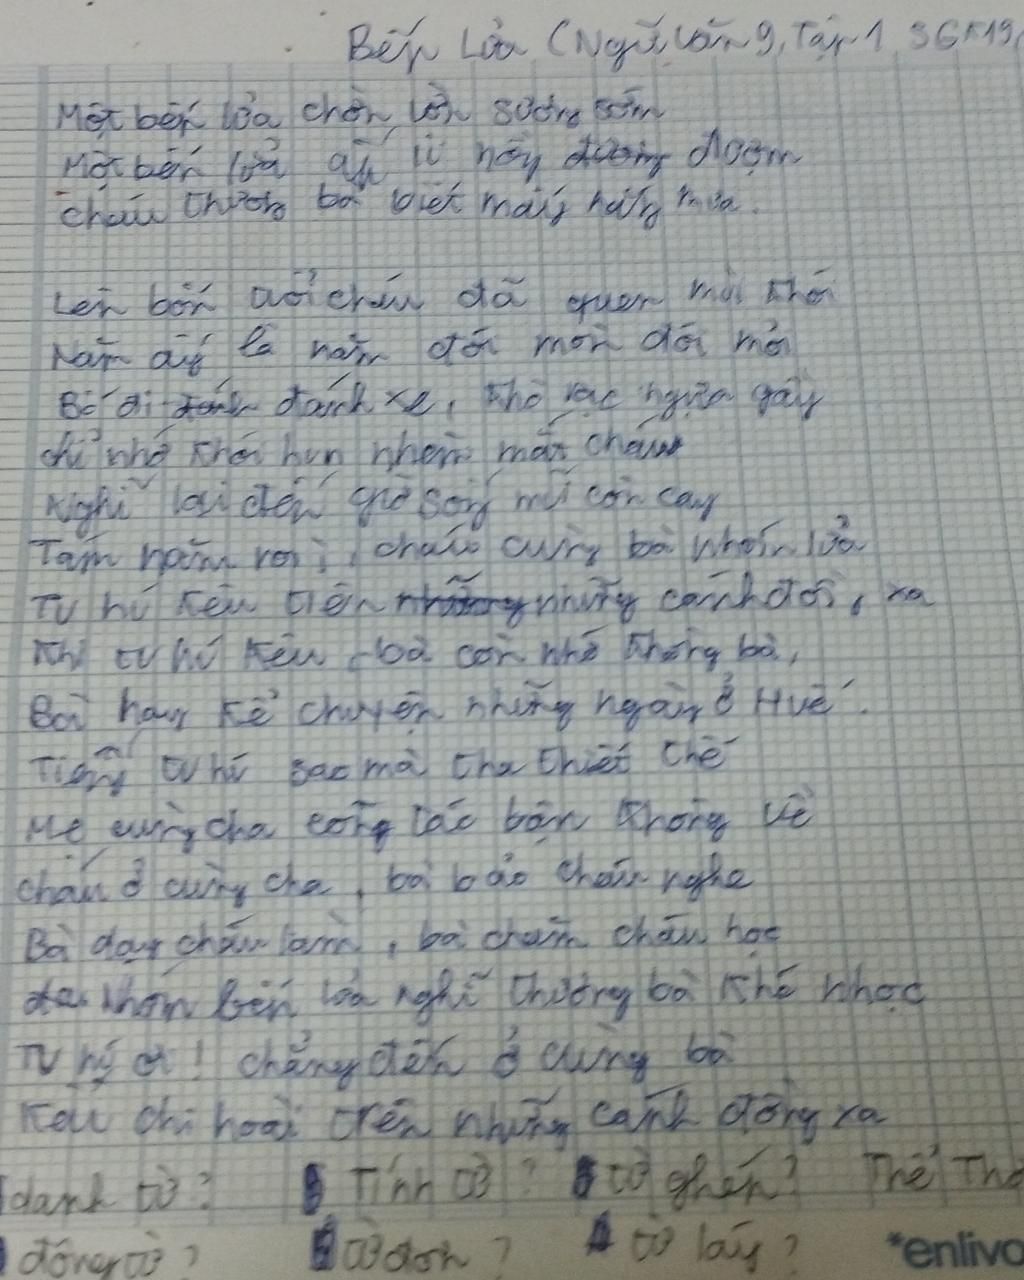 Bếp Lửa (Ngữ văn 9, Tập 1 SGK
Một bếp lửa chờn vờn sương sớm
Một bếp lửa ấp iu nồng đượm
cháu thương bà biết mấy nắng mưa.
Lên bốn tuổi cháu đã quen mùi khói
Năm ấy là năm đói mòn đói mỏi
Bố đi đánh xe, khô rạc ngựa gầy
chỉ nhớ khói hun nhèm mắt cháu
Nghĩ lại đến giờ sống mũi còn cay
Tám năm ròi, cháu cùng bà nhóm lửa
Tu hú kêu trên những cánh đồi, xa
Khi tu hú kêu, bà còn nhớ không bà,
Bà hay kể chuyện những ngày ở Huế.
Tiếng tu hú sao mà tha thiết thế
Mẹ cùng cha công tác bận không về
cháu ở cùng cha, bà bảo cháu nghe
Bà dạy cháu làm, bà chăm cháu học
nhóm bếp lửa nghĩ thương bà khó nhọc
Tu hú ơi! chẳng đến ở cùng bà
Kêu chi hoài trên những cánh đồng xa
danh từ? Tính từ? từ ghép? Thể Thơ
động từ? từ đơn? từ láy? *enlivo